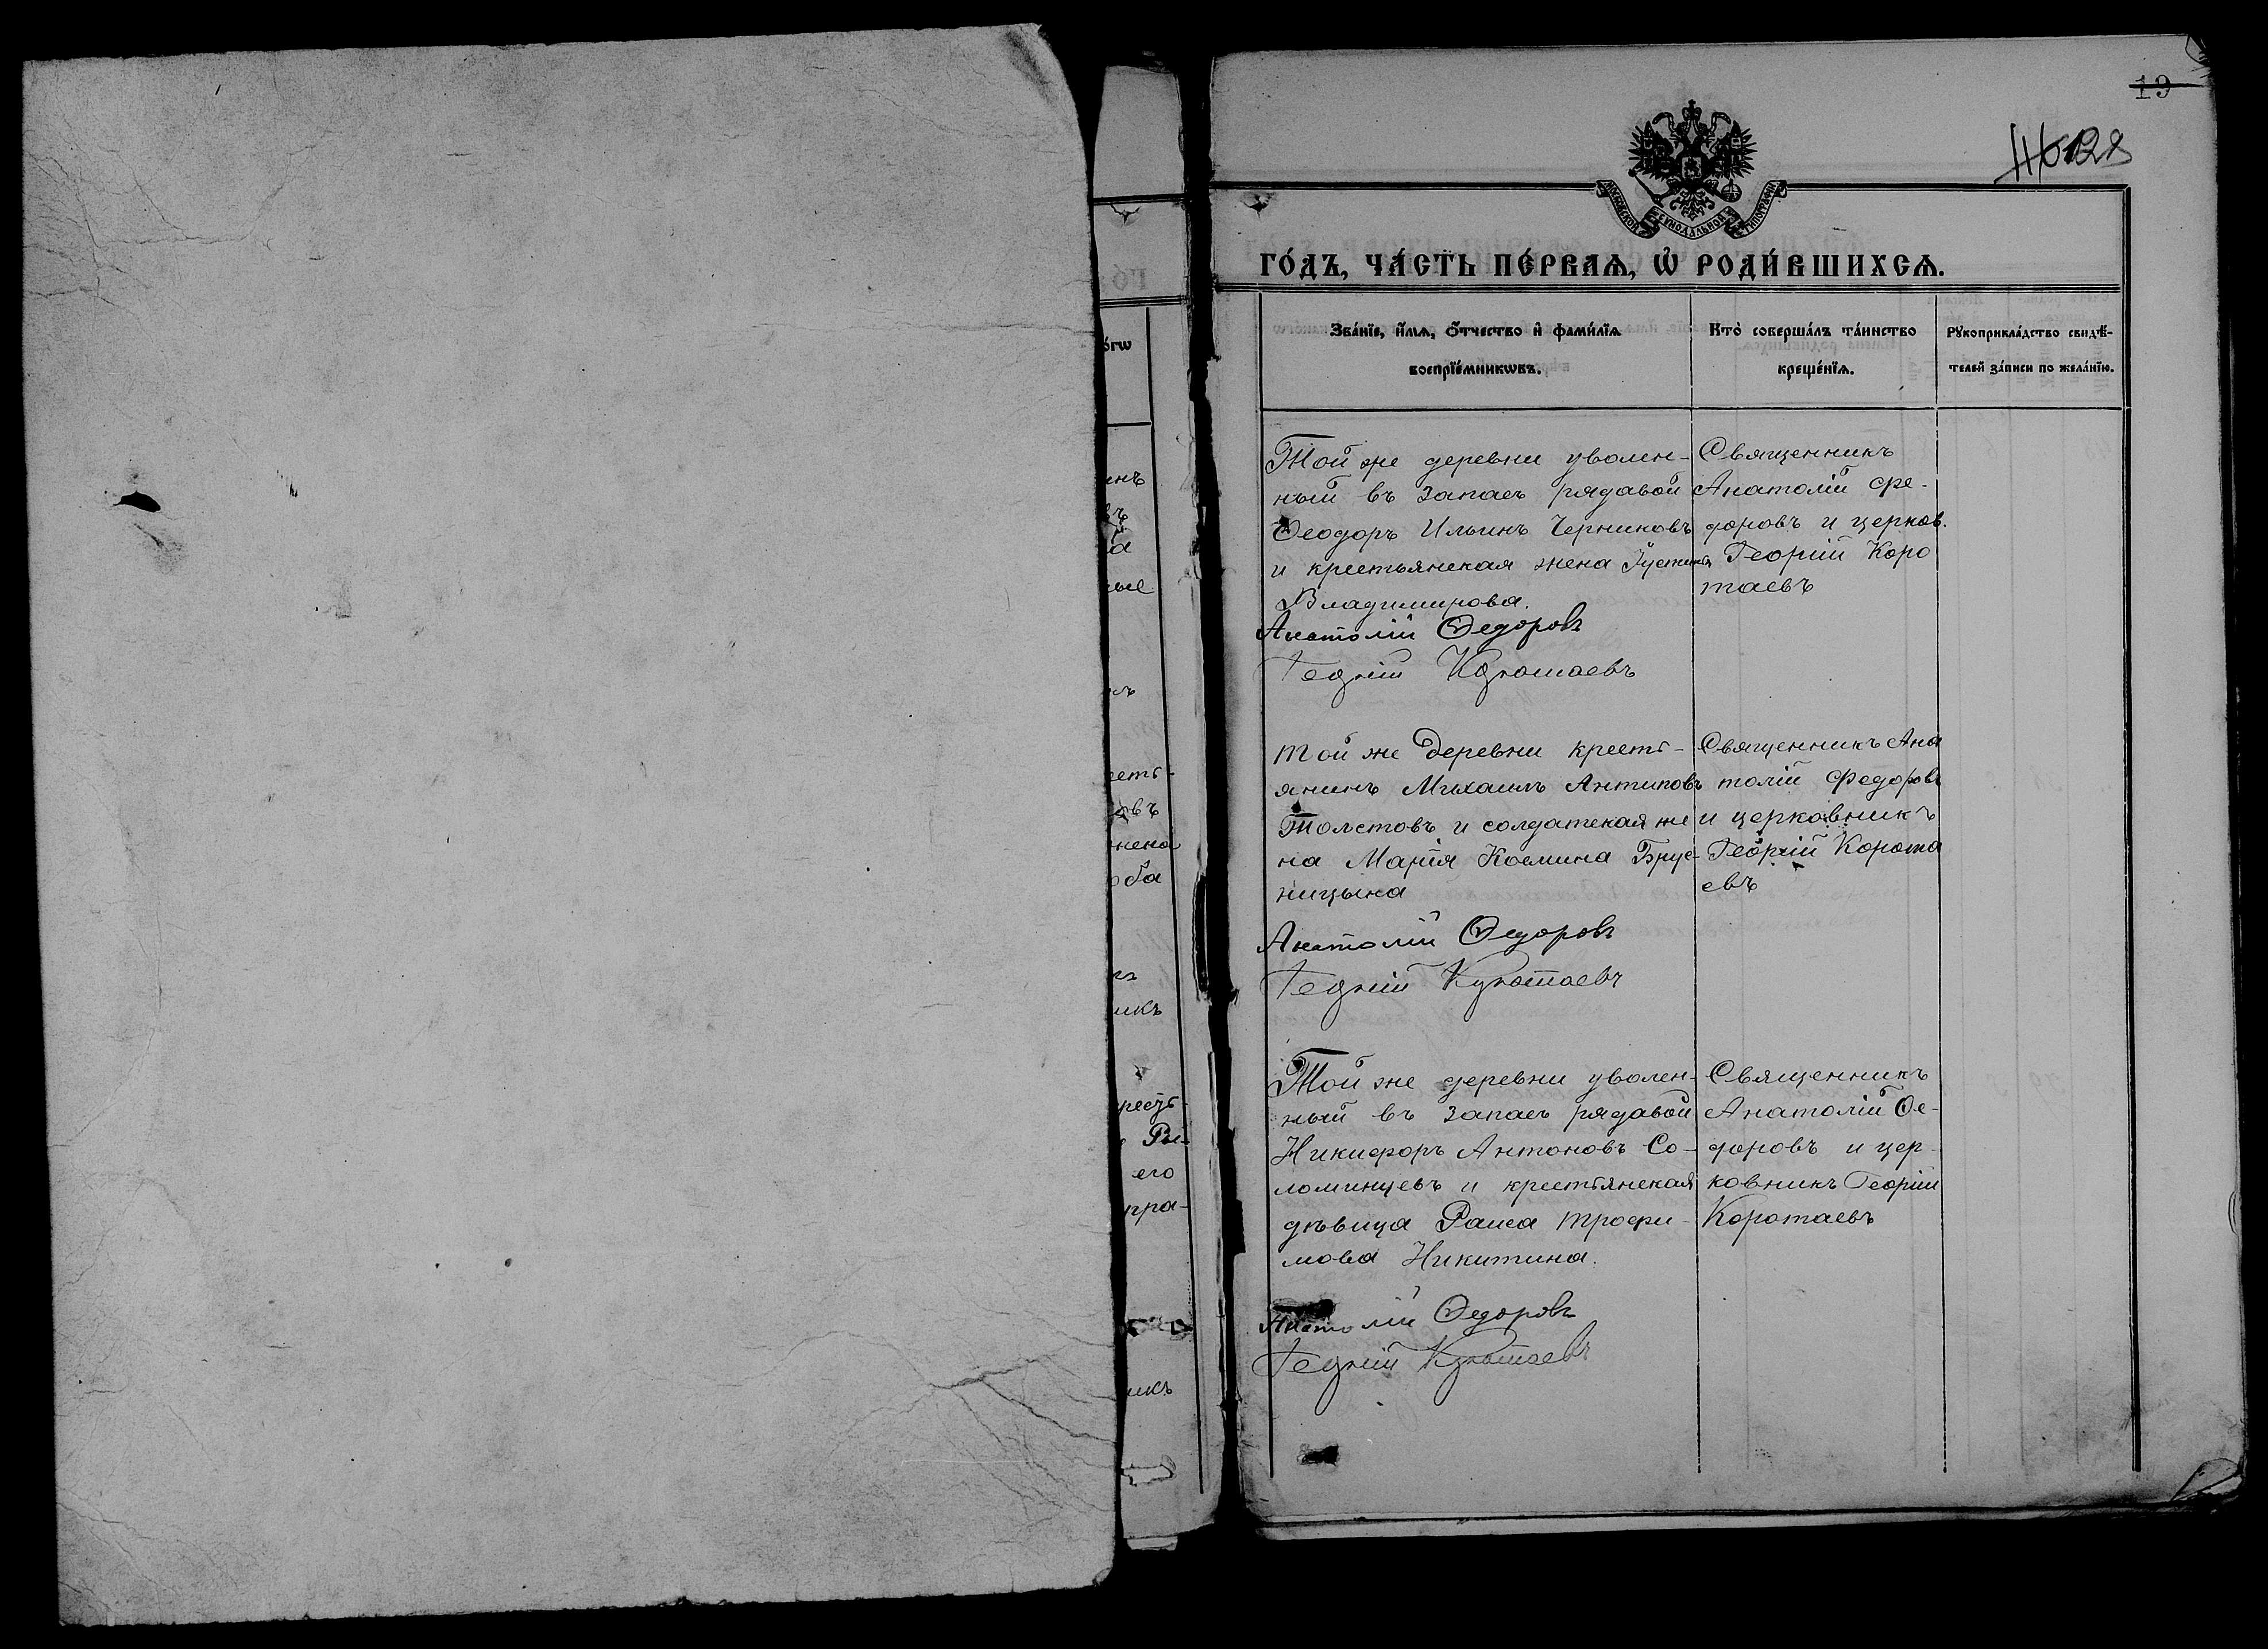 19
128
МОСКОВСКОЙ СѴНОДАЛЬНОЙ ТИПОГРАФІИ
ГО́ДЪ, ЧА́СТЬ ПЕ́РВАѦ, Ѡ҆ РОДИ́ВШИХСѦ.
Зва́нїе, и҆́мѧ, ѻ҆́тчество и҆ фами́лїѧ
воспрїе́мникѡвъ.
Кто̀ соверша́лъ та́инство
креще́нїѧ.
Рꙋкоприкла́дство свидѣ́-
телей за́писи по жела́нїю.
Той же деревни уволен-
ный въ запасъ рядавой
Ѳеодоръ Ильинъ Черниковъ
и крестьянская жена Іустина
Владимирова.
Анатолій Ѳедоровъ
Георгій Коротаевъ
Священникъ
Анатолій Фе-
доровъ и церков.
Георгій Коро
таевъ
Той же деревни кресть-
янинъ Михаилъ Антиповъ
Толстовъ и солдатская же
на Марія Космина Брус-
ницына
Анатолій Ѳедоровъ
Георгій Коротаевъ
Священникъ Ана
толій Федоровъ
и церковникъ
Георгій Корота
евъ
Той же деревни уволен-
ный въ запасъ рядавой
Никифоръ Антоновъ Со-
ломинцевъ и крестьянская
дѣвица Раиса Трофи-
мова Никитина.
Анатолій Ѳедоровъ
Георгій Коротаевъ
Священникъ
Анатолій Ѳе-
доровъ и цер-
ковникъ Георгій
Коротаевъ